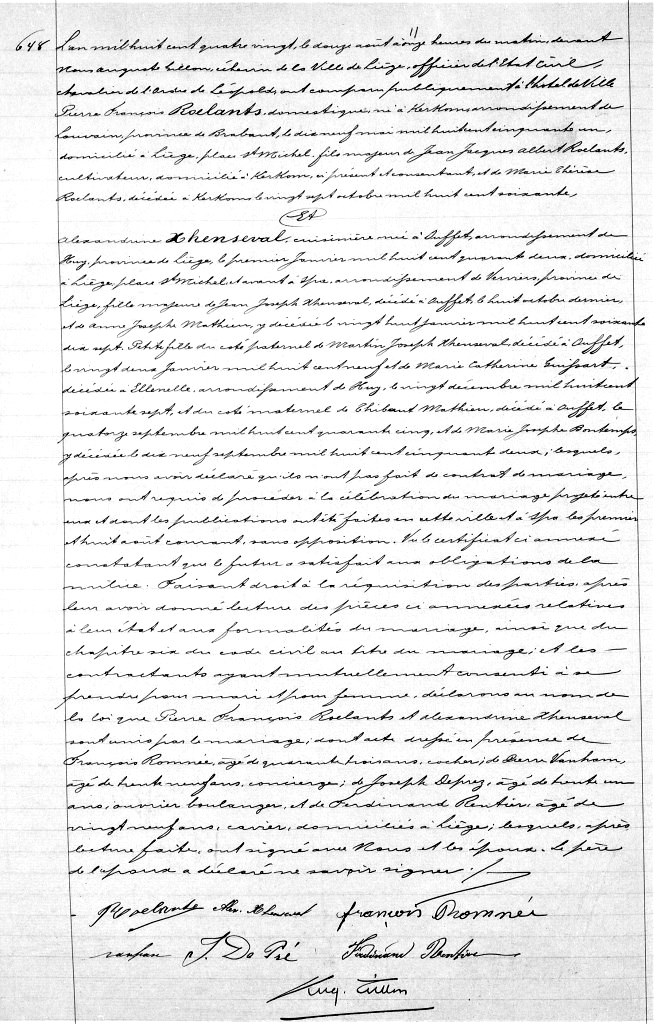 648 L'an mil huit cent quatre vingt, le douze août à onze heures du matin, devant
Nous Auguste Gillon, échevin de la Ville de Liège, officier de l'Etat Civil,
chevalier de l'Ordre de Léopold, ont comparu publiquement à l'hotel de Ville
Pierre François Roelants, domestique, né à Kerkom, arrondissement de
Louvain, province de Brabant, le dix neuf mai mil huit cent cinquante un,
domicilié à Liège, place St Michel, fils majeur de Jean Jacques Albert Roelants,
cultivateur, domicilié à Kerkom, ci présent et consentant, et de Marie Thérèse
Roelants, décédée à Kerkom le vingt sept octobre mil huit cent soixante,
Et
Alexandrine Xhenseval, cuisinière née à Ouffet, arrondissement de
Huy, province de Liège, le premier Janvier mil huit cent quarante deux, domiciliée
à Liège, place St Michel et avant à Spa, arrondissement de Verviers, province de
Liège, fille majeure de Jean Joseph Xhenseval, décédé à Ouffet, le huit octobre dernier,
et de Anne Joseph Mathieu, y décédée le vingt huit janvier mil huit cent soixante
dix sept. Petite fille du coté paternel de Martin Joseph Xhenseval, décédé à Ouffet,
le vingt deux Janvier mil huit cent neuf et de Marie Catherine
décédée à Ellenelle, arrondissement de Huy, le vingt décembre mil huit cent
soixante sept, et du coté maternel de Thibaut Mathieu, décédé à Ouffet, le
quatorze septembre mil huit cent quarante cinq, et de Marie Josephe Bontemps,
y décédée le dix neuf septembre mil huit cent cinquante deux; lesquels,
après nous avoir déclaré qu'ils n'ont pas fait de contrat de mariage,
nous ont requis de procéder à la célébration du mariage projeté entre
eux et dont les publications ont été faites en cette ville et à Spa les premier
et huit août courant, sans opposition. Vu le certificat ci annexé
constatant que le futur a satisfait aux obligations de la
milice. Faisant droit à la réquisition des parties, après
leur avoir donné lecture des pièces ci annexées relatives
à leur état et aux formalités du mariage, ainsi que du
chapitre six du code civil au titre du mariage; et les
contractants ayant mutuellement consenti à se
prendre pour mari et pour femme, déclarons au nom de
la loi que Pierre François Roelants et Alexandrine Xhenseval
sont unis par le mariage; dont acte dressé en présence de
François Romnée, âgé de quarante trois ans, cocher; de Pierre Vanham,
âgé de trente neuf ans, concierge; de Joseph Deprez, âgé de trente un
ans, ouvrier boulanger, et de Ferdinand Rentier, âgé de
vingt neuf ans, cavier, domiciliés à Liège; lesquels, après
lecture faite, ont signé avec Nous et les époux. Le père
de l'époux a déclaré ne savoir signer.
Roelants Alex. Xhenseval François Romnée
vanham J. De Pré Ferdinand Rentier
Aug. Gillon